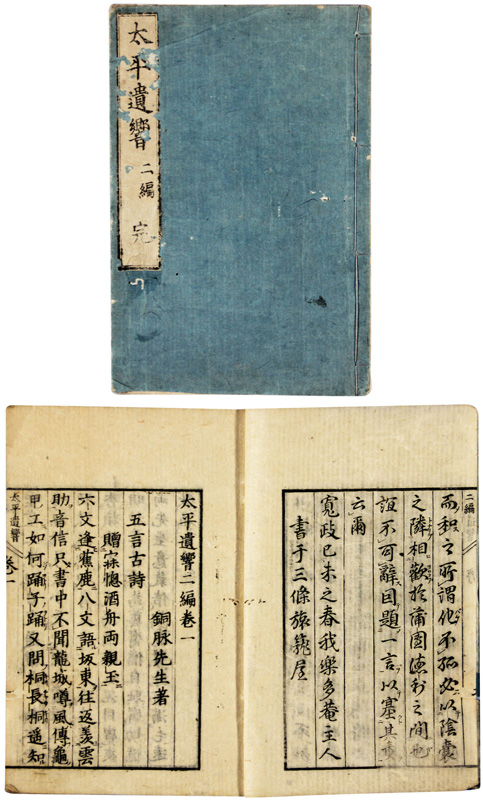 太平遺響
二編
完
二編
而積之所謂化不孤必以陰囊
之隣相歡於蒲團渣滓之間也
誼不可辭因題一言以塞其
云爾
寬政己未之春我樂多菴主人
書于三條旅籠屋
太平遺響二編卷一
銅脈先生著
五言古詩
贈寐惚酒舟兩親王
六文逢蕉鹿八文語坂東往返羨雲
助音信只書中不聞龍城噂風傳龜
甲工如何踊子踊又問桐長桐遥知
太平遺響
卷一